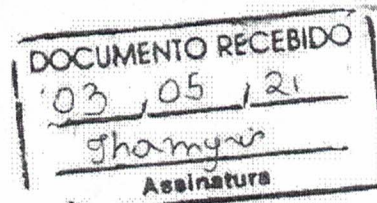 DOCUMENTO RECEBIDO
03 / 05 / 21
Thamyris
Assinatura